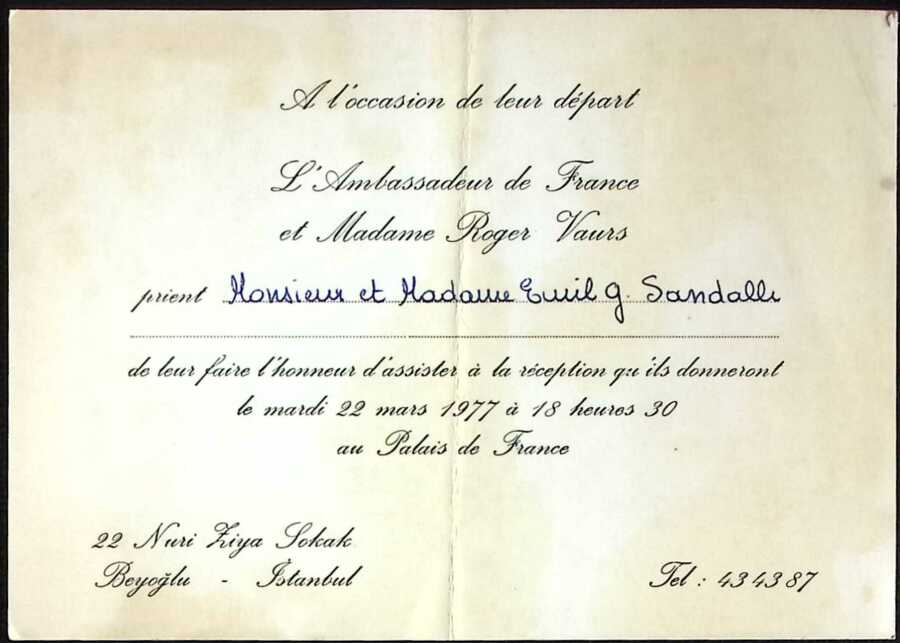 A l'occasion de leur départ
L'Ambassadeur de France
et Madame Roger Vaurs
prient Monsieur et Madame Emil G. Sandalli
de leur faire l'honneur d'assister à la réception qu'ils donneront
le mardi 22 mars 1977 à 18 heures 30
au Palais de France
22 Nuri Ziya Sokak
Beyoğlu - İstanbul
Tel : 43 43 87